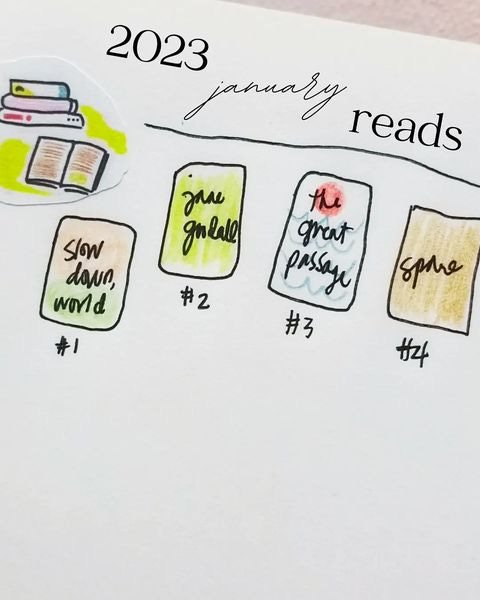 2023
january
reads
slow
down,
world
#1
jane
goodall
#2
the
great
passage
#3
spare
#4